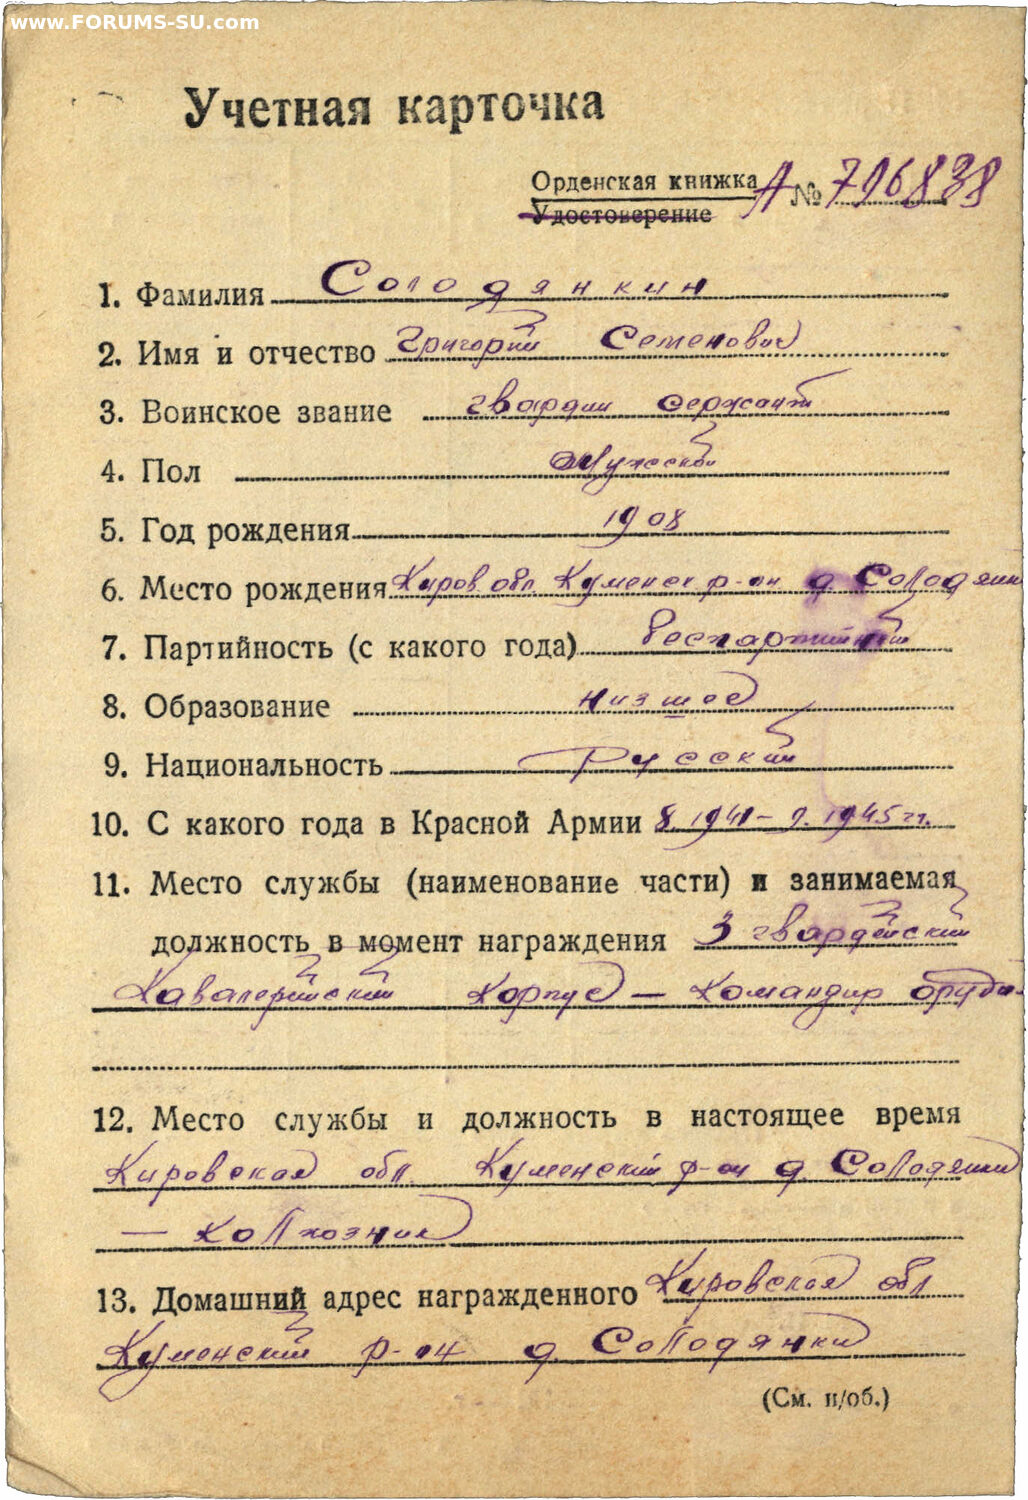 www.FORUMS-SU.com
Учетная карточка
Орденская книжка А № 796838
Удостоверение
1. Фамилия Солодянкин
2. Имя и отчество Григорий Семенович
3. Воинское звание гвардии сержант
4. Пол Мужской
5. Год рождения 1908
6. Место рождения Киров. обл. Куменск р-он д. Солодянки
7. Партийность (с какого года) беспартийный
8. Образование низшее
9. Национальность Русский
10. С какого года в Красной Армии 8. 1941 – 9. 1945 гг.
11. Место службы (наименование части) и занимаемая
должность в момент награждения 3 гвардейский
Кавалерийский Корпус – Командир
12. Место службы и должность в настоящее время
Кировская обл. Куменский р-он д. Солодянки
– колхозник
13. Домашний адрес награжденного Кировская обл
Куменский р-он д. Солодянки
(См. н/об.)